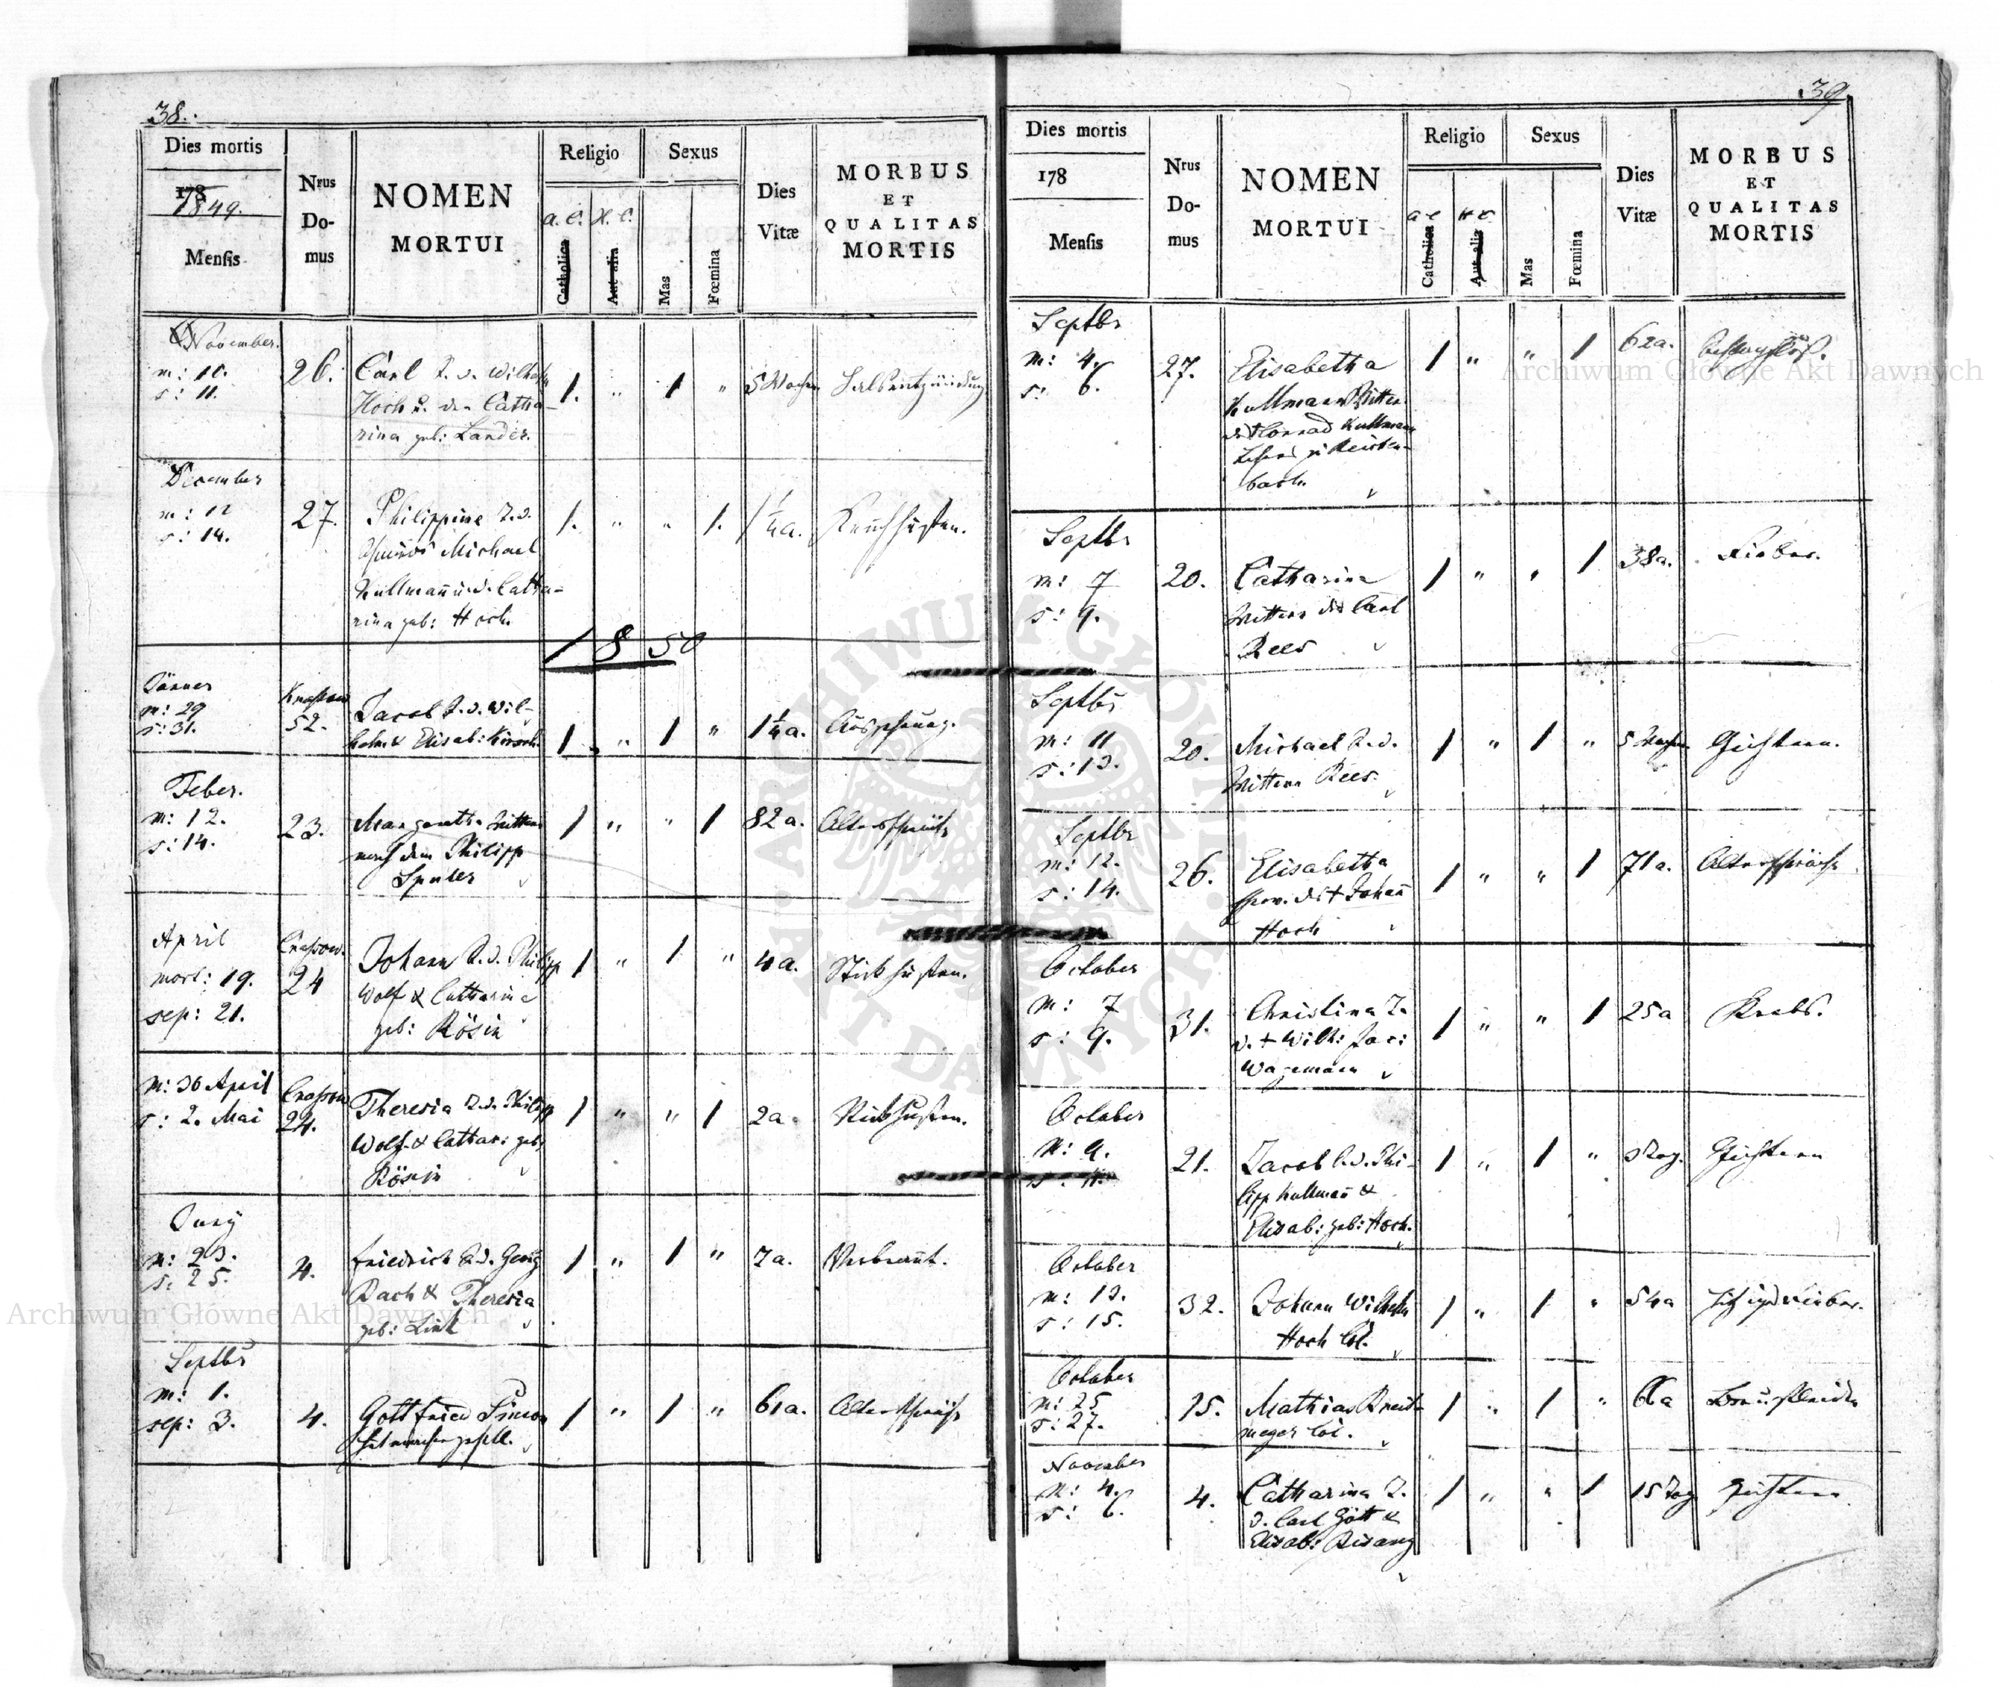 38.
Dies mortis
178
1849.
Mensis
Nrus
Do-
mus
NOMEN
MORTUI
Religio
a. c.
H. C.
Catholica
Aut alia
Sexus
Mas
Fœmina
Dies
Vitæ
MORBUS
ET
QUALITAS
MORTIS
November.
m: 10.
s: 11.
26.
Carl S. v. Wilhelm
Hoch u. der Catha-
rina geb: Lander.
1. " 1 "
5 Wochen
Halsentzündung
December
m: 12
s: 14.
27.
Philippina T. d.
Michael
Kullmann u. d. Catha-
rina geb: Hoch.
1. " " 1.
1 1/4 a.
Keuchhusten.
1850
Jänner
m: 29
s: 31.
52.
Jacob S. d. Wil-
helm & Elisab: Kirsch.
1 " 1 "
1 1/4 a.
Feber.
m: 12.
s: 14.
23.
Margaretha Wittwe
nach dem Philipp
1 " " 1
82 a.
Altersschwäche
April
mort: 19.
sep: 21.
Crassow.
24
Johann S. d. Philipp
Wolf & Catharina
geb: Rösin
1 " 1 "
4 a.
Stickhusten.
M: 30 April
s: 2. Mai
Crassow
24.
Theresia T. d. Philipp
Wolf & Cathar: geb.
Rösin
1 " " 1
2 a.
Stickhusten.
Juny
m: 23.
s: 25.
4.
Friedrich S. d. Georg
Bach & Theresia
geb: Link
1 " 1 "
7 a.
Verbrennt.
Septbr
m: 1.
sep: 3.
4.
Gottfried Simon
1 " 1 "
61 a.
Altersschwäche
39.
Dies mortis
178
Mensis
Nrus
Do-
mus
NOMEN
MORTUI
Religio
a c
H C
Catholica
Aut alia
Sexus
Mas
Fœmina
Dies
Vitæ
MORBUS
ET
QUALITAS
MORTIS
Septbr
m: 4.
s: 6.
27.
Elisabetha
Kullmann Wittwe
d. † Conrad Kullmann
zu Reichen-
bach.
1 " " 1
62 a.
Septbr
m: 7
s: 9.
20.
Catharina
Wittwe des Carl
Rees
1 " " 1
38 a.
Fieber.
Septbr
m: 11
s: 13.
20.
Michael S. d.
Wittwe Rees.
1 " 1 "
5 Wochen
Gichtern.
Septbr
m: 12.
s: 14.
26.
Elisabetha
des † Johann
Hoch
1 " " 1
71 a.
Altersschwäche
October
m: 7
s: 9.
31.
Christina T.
d. † Wilh: Jac:
Wagemann
1 " " 1
25 a
Krebs.
October
M: 9.
s: 11.
21.
Jacob S. d. Phi-
lipp Kullmann &
Elisab: geb: Hoch.
1 " 1 "
Gichtern
October
m: 13.
s: 15.
32.
Johann Wilhelm
Hoch Col.
1 " 1 "
54 a
October
m: 25
s: 27.
15.
Mathias
meyer Col.
1 " 1 "
November
M: 4.
s: 6.
4.
Catharina T.
d. Carl Gött &
Elisab: Bisanz
1 " " 1
15 Tag
Gichtern
Archiwum Główne Akt Dawnych
Archiwum Główne Akt Dawnych
ARCHIWUM GŁÓWNE
AKT DAWNYCH